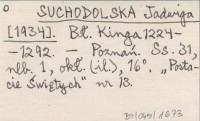 SUCHODOLSKA Jadwiga
[1934]. Bł. Kinga 1224-
-1292. — Poznań. Ss. 31,
nlb. 1, okł. (il.), 16°. „Posta-
cie Świętych" nr 13.